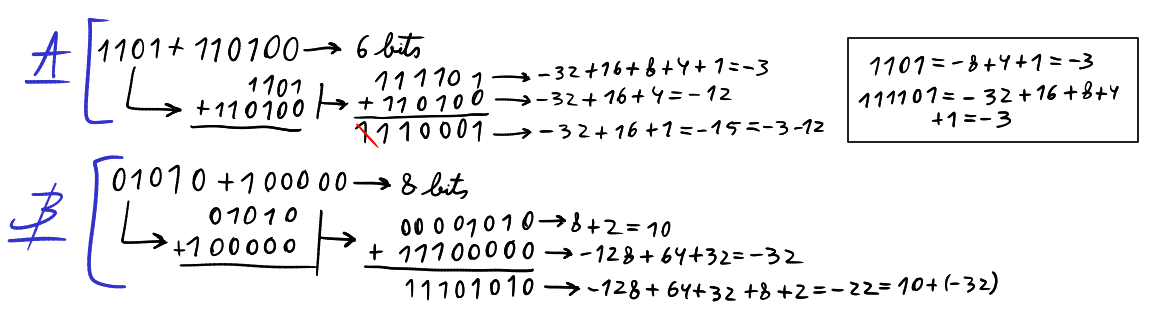 A
1101 + 110100 → 6 bits
1101
+110100
111101 → -32+16+8+4+1=-3
+110100 → -32+16+4=-12
1110001 → -32+16+1=-15=-3-12
1101=-8+4+1=-3
111101=-32+16+8+4
+1=-3
B
01010 + 100000 → 8 bits
01010
+100000
00001010 → 8+2=10
+ 11100000 → -128+64+32=-32
11101010 → -128+64+32+8+2=-22=10+(-32)